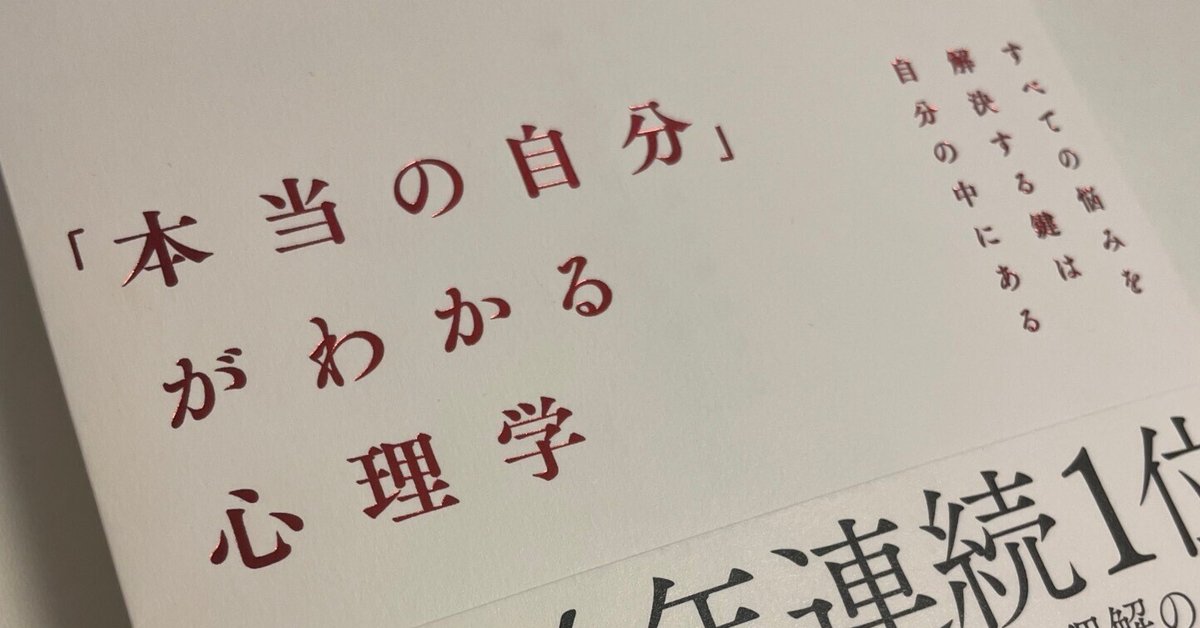 「本当の自分」
がわかる
心理学
すべての悩みを
解決する鍵は
自分の中にある
年連続1位
解の